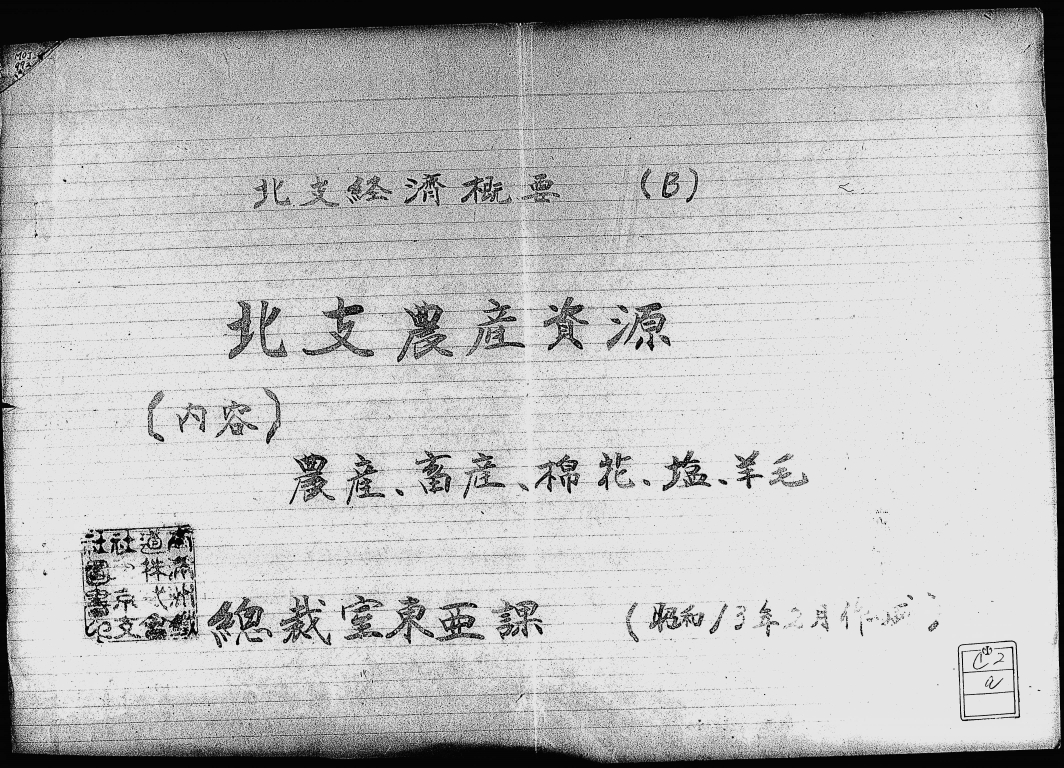 北支経済概要 (B)
北支農産資源
(内容)
農産、畜産、棉花、塩、羊毛
總裁室東亜課 (昭和13年2月作成)
南満洲鐵
道株式會
社東京支
社圖書
C2
a